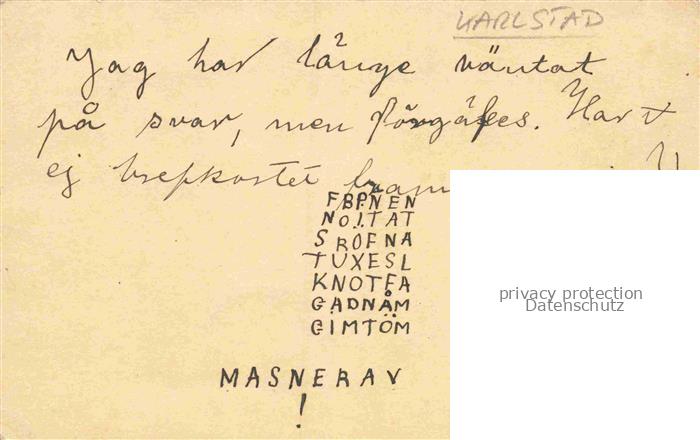 KARLSTAD
Jag har länge väntat
på svar, men förgäfves. Har t
ej brefkortet fram
FBPNEN
NOITAT
SROFNA
TUXESL
KNOTFA
GADNÅM
GIMTÖM
MASNERAV
!
privacy protection
Datenschutz